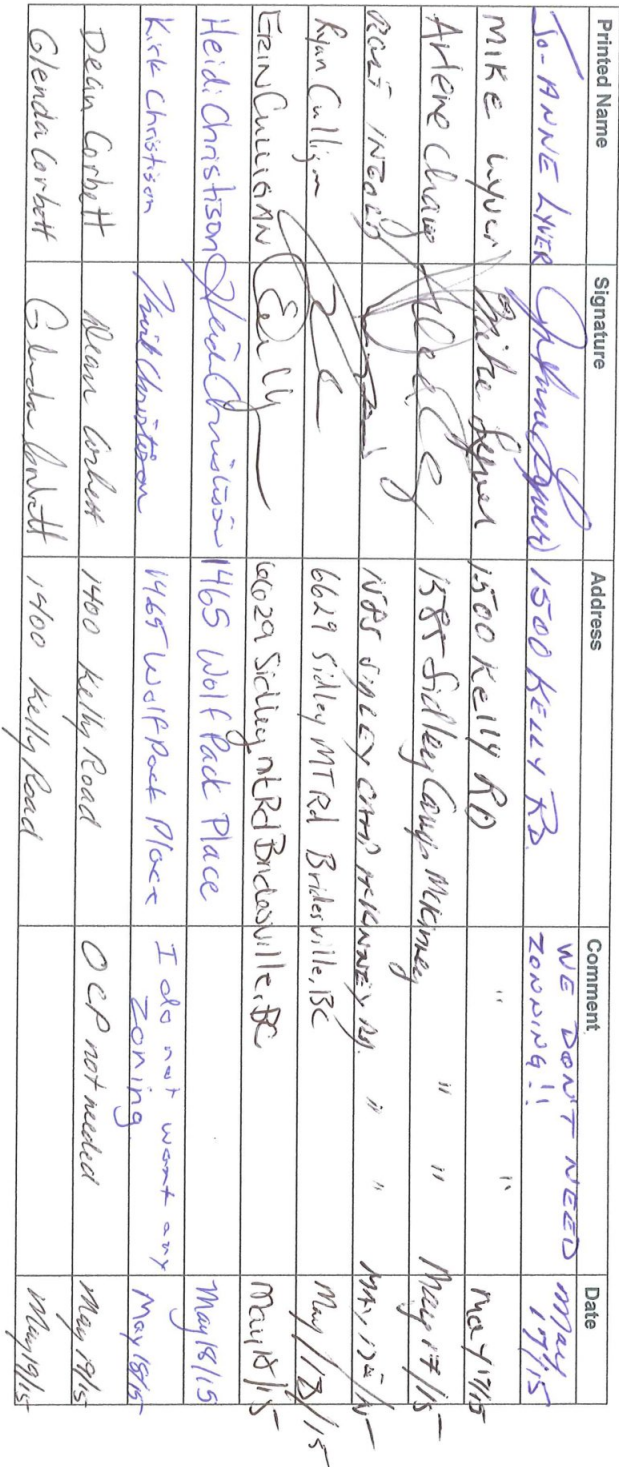 Printed Name Signature Address Comment Date
JO-ANNE LYVER Jo Anne Lyver 1500 KELLY RD. WE DON'T NEED ZONNING!! May 17/15
MIKE Lyver Mike Lyver 1500 Kelly RD " " May 17/15
Arlene 1585 Sidley Camp Mckinney " " May 17/15
SIDLEY CAMP McKINNEY RD. " " MAY 17th/15
Ryan Culligan 6629 Sidley MT Rd Bridesville, BC May/18/15
ERIN CULLIGAN 6629 Sidley mt Rd Bridesville, BC May 18/15
Heidi Christison Heidi Christison 1465 Wolf Pack Place May 18/15
Kirk Christison Kirk Christison 1465 Wolf Pack Place I do not want any zoning May 18/15
Dean Corbett Dean Corbett 1400 Kelly Road OCP not needed May 19/15
Glenda Corbett Glenda Corbett 1400 Kelly Road May 19/15